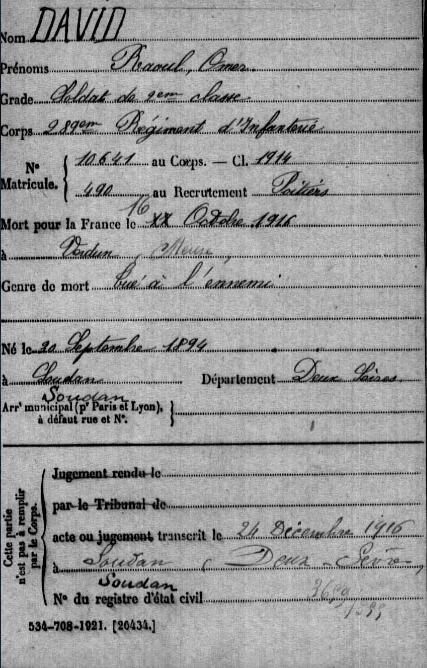 Nom DAVID
Prénoms Raoul, Omer
Grade Soldat de 2em classe
Corps 289em Régiment d'Infanterie
N° Matricule. { 10641 au Corps. — Cl. 1914
490 au Recrutement Poitiers
Mort pour la France le 16 Octobre 1916
à Verdun, Meuse,
Genre de mort tué à l'ennemi
Né le 20 Septembre 1894
à Soudan Département Deux Sèvres
Soudan
Arrt municipal (pr Paris et Lyon), à défaut rue et N°.
Cette partie n'est pas à remplir par le Corps.
Jugement rendu le
par le Tribunal de
acte ou jugement transcrit le 24 Décembre 1916
à Soudan (Deux-Sèvres)
Soudan
N° du registre d'état civil
534-708-1921. [26434.]